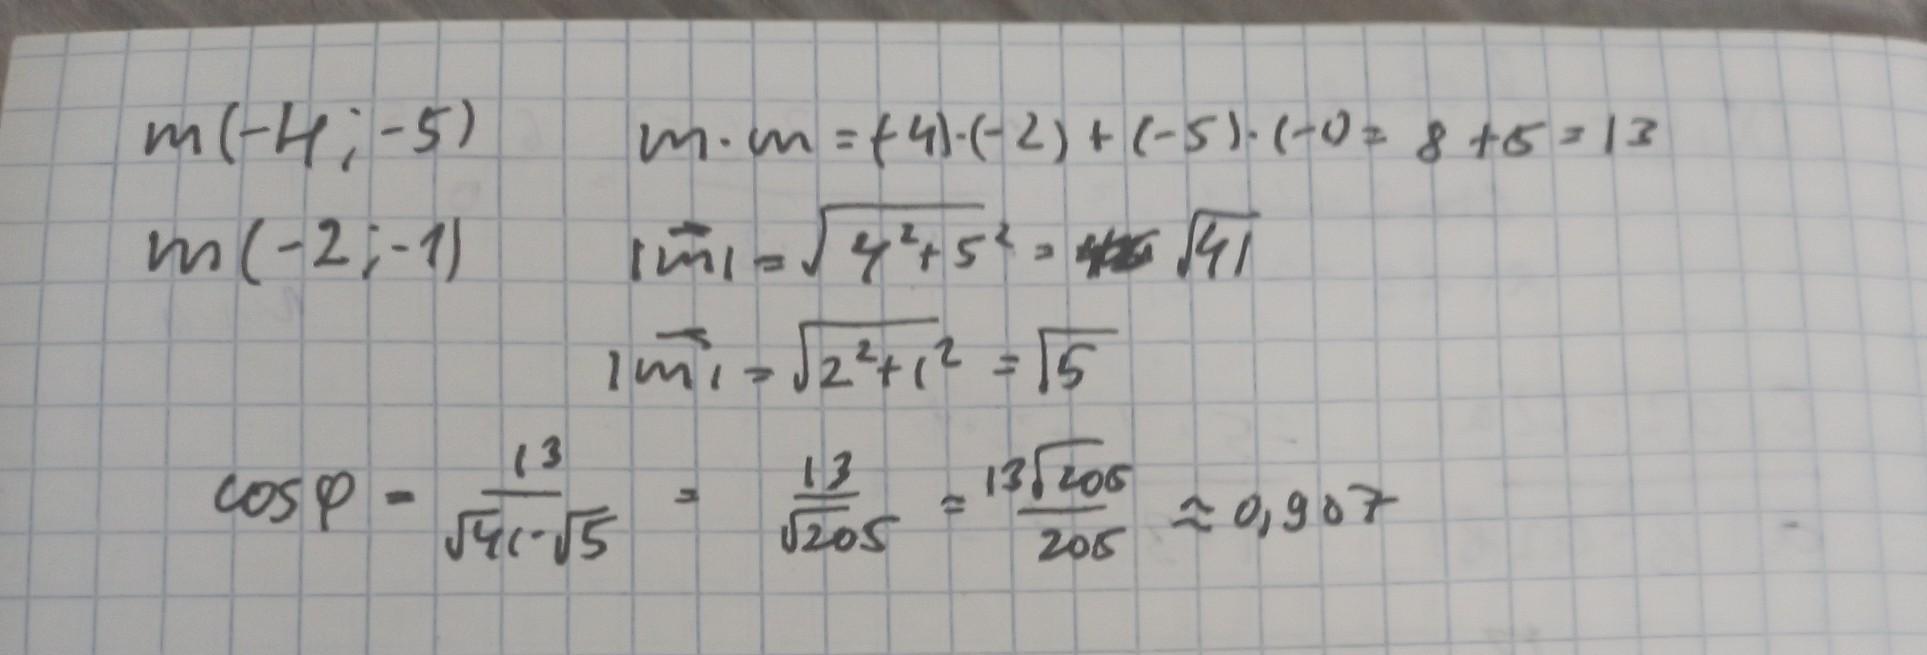 m(-4;-5) m·m = (-4)·(-2) + (-5)·(-1) = 8 + 5 = 13
m(-2;-1) |m⃗| = √(4²+5²) = √41
|m⃗| = √(2²+1²) = √5
cos φ = 13/(√41·√5) = 13/√205 = 13√205/205 ≈ 0,907